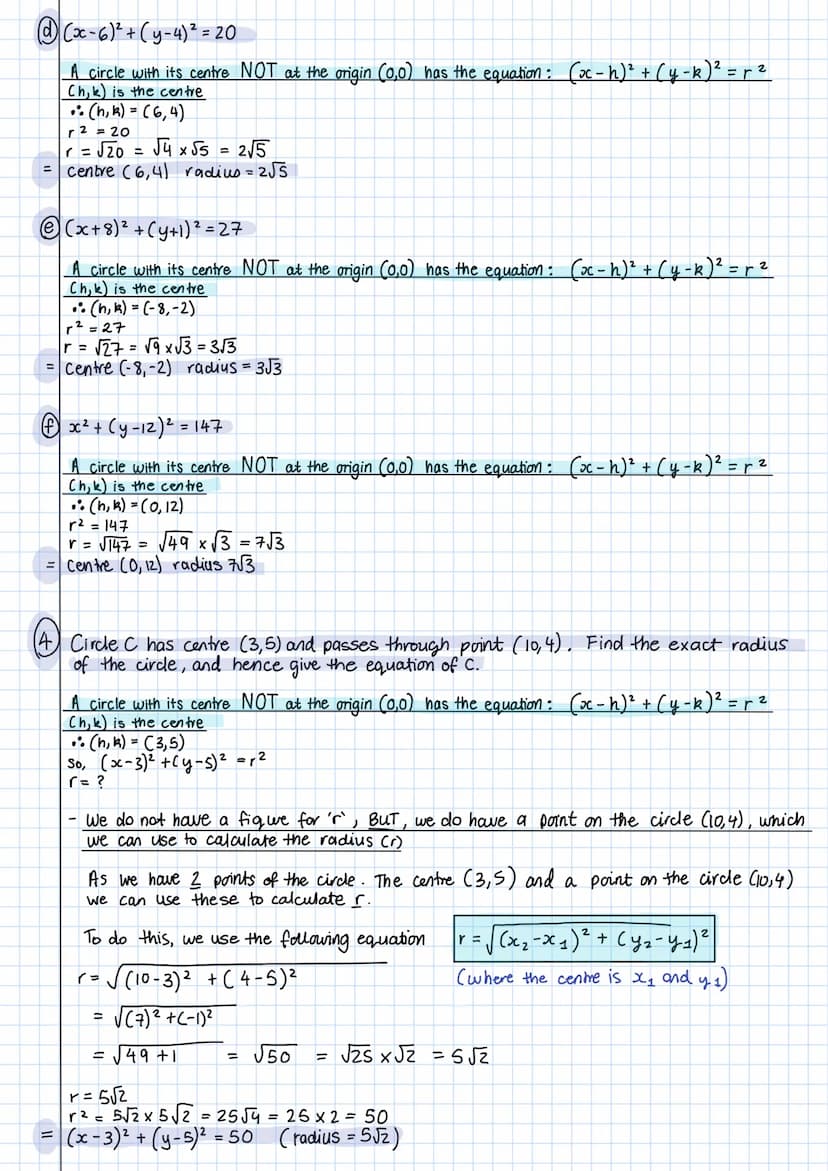 (d) (x-6)² + (y-4)² = 20
A circle with its centre NOT at the origin (0,0) has the equation: (x-h)² + (y-k)² = r²
(h,k) is the centre
∴ (h,k) = (6,4)
r² = 20
r = √20 = √4 x √5 = 2√5
= centre (6,4) radius = 2√5
(e) (x+8)² + (y+1)² = 27
A circle with its centre NOT at the origin (0,0) has the equation: (x-h)² + (y-k)² = r²
(h,k) is the centre
∴ (h,k) = (-8,-2)
r² = 27
r = √27 = √9 x √3 = 3√3
= Centre (-8,-2) radius = 3√3
(f) x² + (y-12)² = 147
A circle with its centre NOT at the origin (0,0) has the equation: (x-h)² + (y-k)² = r²
(h,k) is the centre
∴ (h,k) = (0,12)
r² = 147
r = √147 = √49 x √3 = 7√3
= Centre (0,12) radius 7√3
(4) Circle C has centre (3,5) and passes through point (10,4). Find the exact radius
of the circle, and hence give the equation of C.
A circle with its centre NOT at the origin (0,0) has the equation: (x-h)² + (y-k)² = r²
(h,k) is the centre
∴ (h,k) = (3,5)
So, (x-3)² + (y-5)² = r²
r = ?
- We do not have a figure for 'r', BUT, we do have a point on the circle (10,4), which
we can use to calculate the radius (r)
As we have 2 points of the circle. The centre (3,5) and a point on the circle (10,4)
we can use these to calculate r.
To do this, we use the following equation r = √(x₂-x₁)² + (y₂-y₁)²
r = √(10-3)² + (4-5)² (where the centre is x₁ and y₁)
= √(7)² + (-1)²
= √49 + 1 = √50 = √25 x √2 = 5√2
r = 5√2
r² = 5√2 x 5√2 = 25√4 = 25 x 2 = 50
= (x-3)² + (y-5)² = 50 (radius = 5√2)